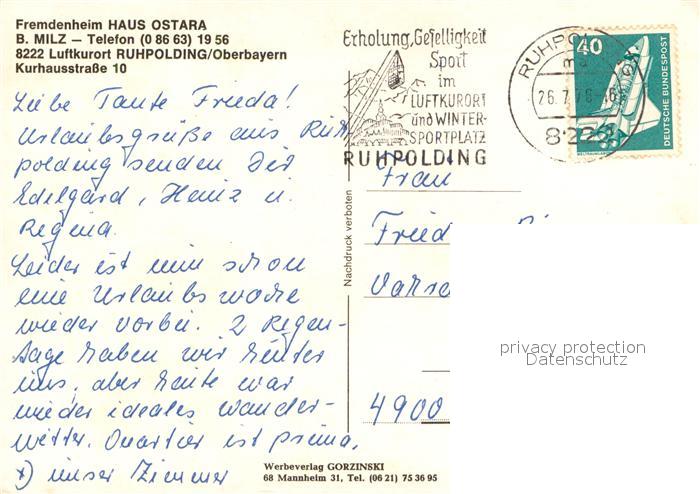 Fremdenheim HAUS OSTARA
B. MILZ — Telefon (0 86 63) 19 56
8222 Luftkurort RUHPOLDING/Oberbayern
Kurhausstraße 10
Liebe Tante Frieda!
Urlaubsgrüße aus Ruh
polding senden Dir
Edelgard, Heinz u.
Regina.
Leider ist nun schon
eine Urlaubswoche
wieder vorbei. 2 Regen-
tage haben wir hinter
uns, aber heute war
wieder ideales Wander-
wetter. Quartier ist prima.
*) unser Zimmer
Erholung, Geselligkeit
Sport
im
LUFTKURORT
und WINTER-
SPORTPLATZ
RUHPOLDING
RUHPOL
26.7.78
8222
40
DEUTSCHE BUNDESPOST
Nachdruck verboten
Frau
Fried
4900
privacy protection
Datenschutz
Werbeverlag GORZINSKI
68 Mannheim 31, Tel. (06 21) 75 36 95